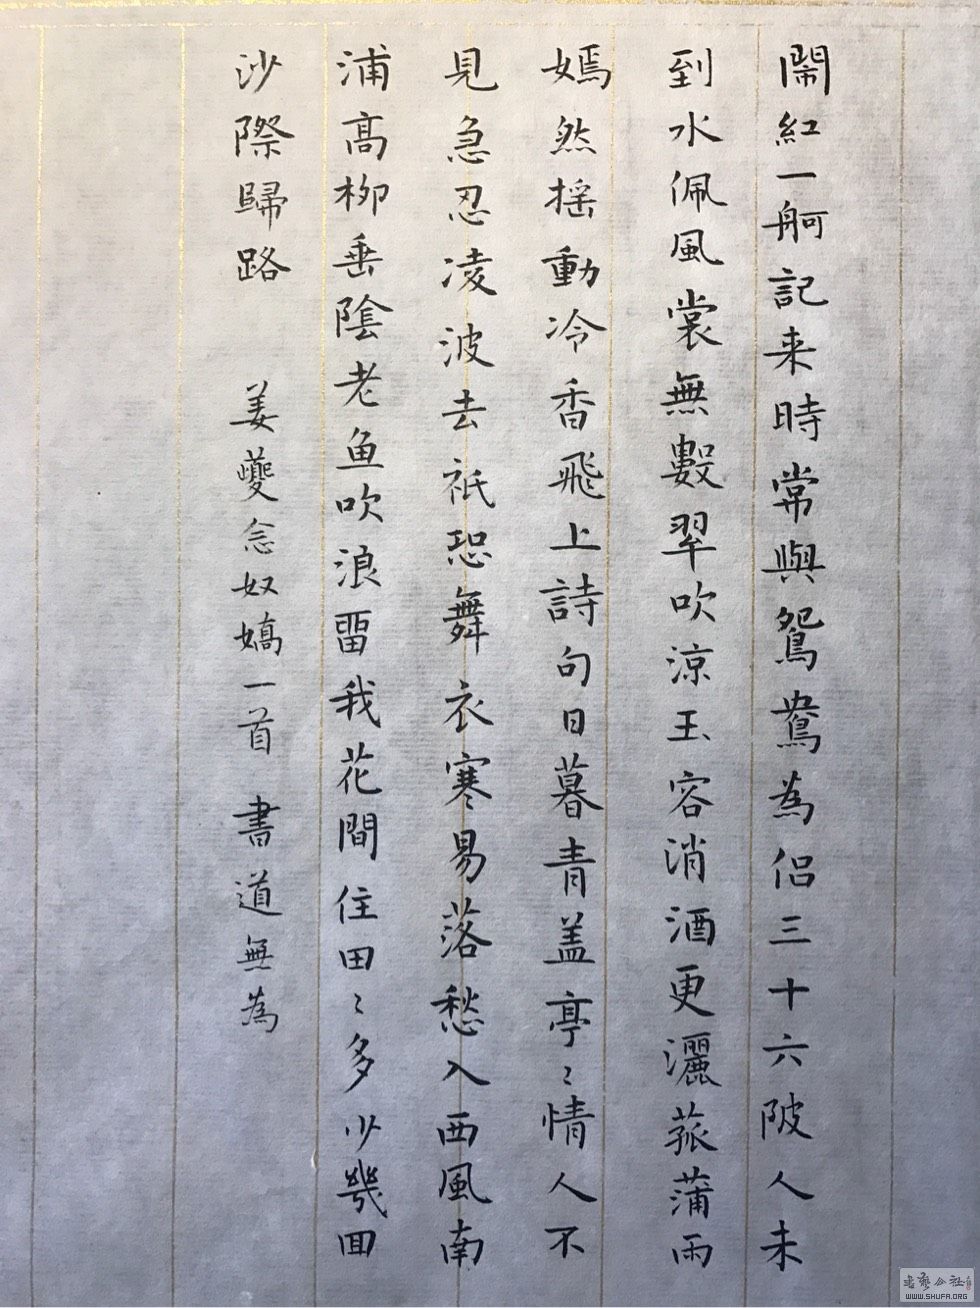 鬧紅一舸記来時常與鴛鴦為侶三十六陂人未
到水佩風裳無數翠吹涼玉容消酒更灑菰蒲雨
嫣然摇動冷香飛上詩句日暮青盖亭〻情人不
見急忍凌波去祇恐舞衣寒易落愁入西風南
浦高柳垂陰老鱼吹浪留我花間住田〻多少幾回
沙際歸路 姜夔念奴嬌一首 書道無為
WWW.SHUFA.ORG